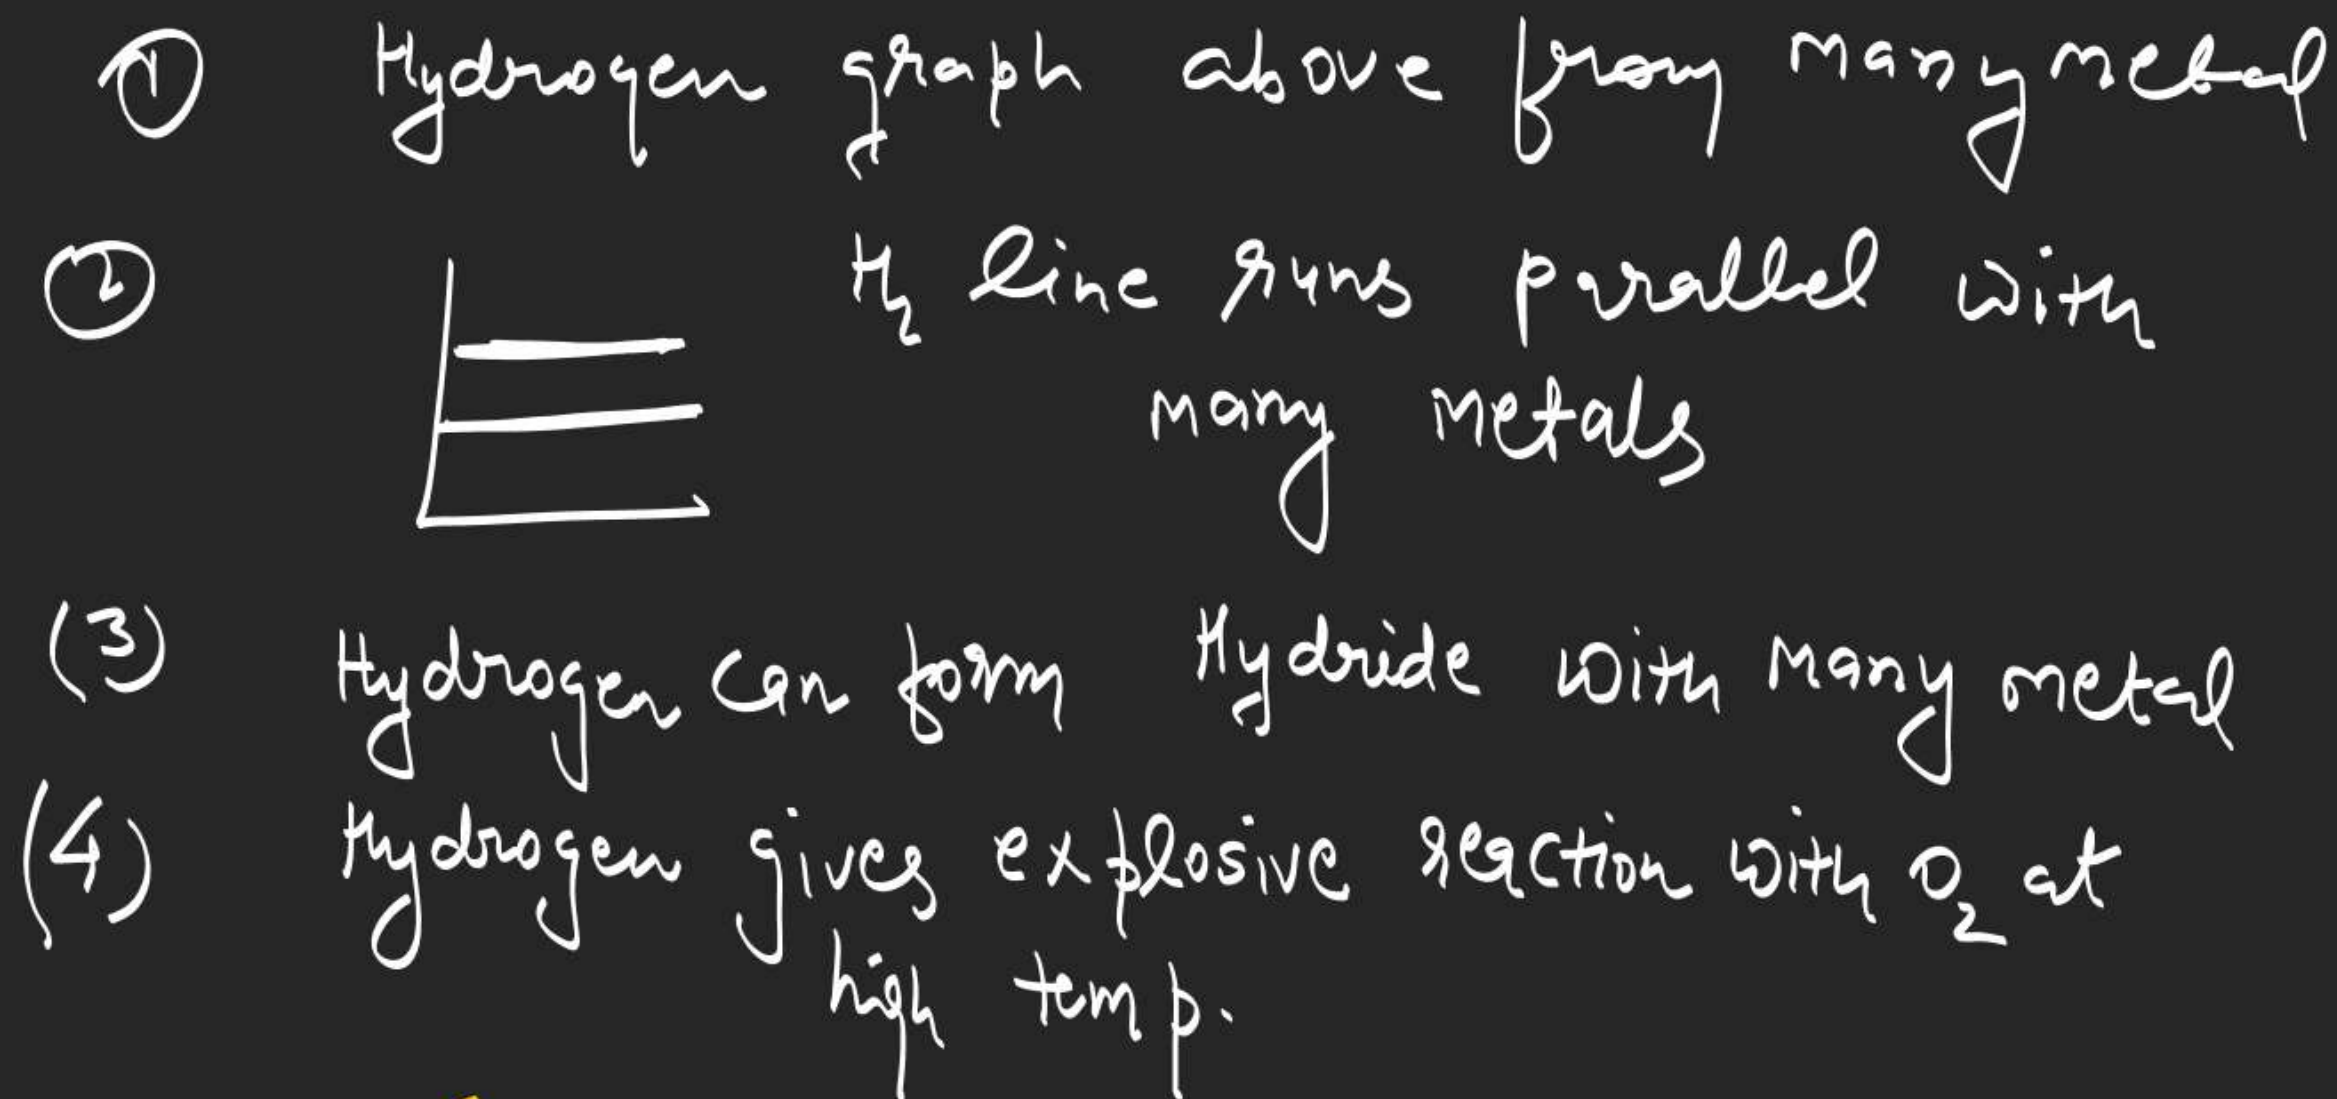 ① Hydrogen graph above from many metal
② H₂ line runs parallel with
many metals
(3) Hydrogen can form Hydride with many metal
(4) Hydrogen gives explosive reaction with O₂ at
high temp.